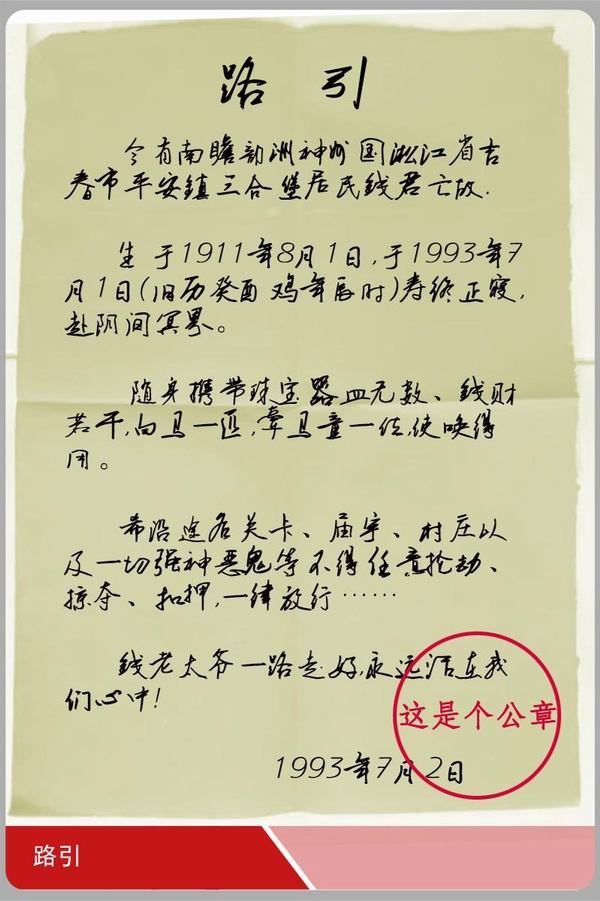 路 引
今有南瞻部洲神州国淞江省吉
春市平安镇三合堡居民钱君亡故.
生于1911年8月1日,于1993年7
月1日(旧历癸酉鸡年辰时)寿终正寝,
赴阴间冥界。
随身携带珠宝器皿无数、钱财
若干,白马一匹,牵马童一位,使唤得
用。
希沿途各关卡、庙宇、村庄以
及一切强神恶鬼等不得任意抢劫、
掠夺、扣押,一律放行……
钱老太爷一路走好,永远活在我
们心中!
这是个公章
1993年7月2日
路引